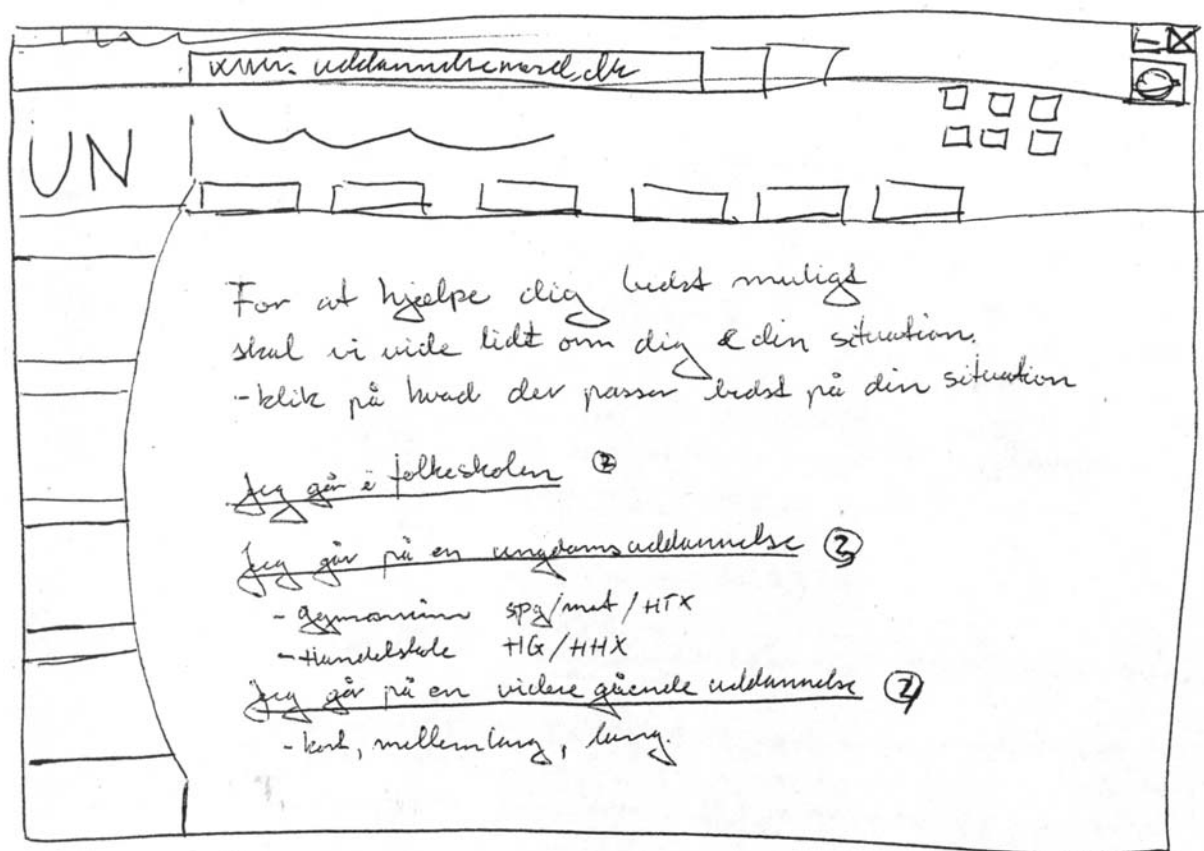 www.uddannelsesnord.dk
UN
For at hjælpe dig bedst muligt
skal vi vide lidt om dig & din situation.
- klik på hvad der passer bedst på din situation
Jeg går i folkeskolen
Jeg går på en ungdomsuddannelse
- gymnasium spg/mat/HTX
- Handelskole HG/HHX
Jeg går på en videre gående uddannelse
- kort, mellemlang, lang.